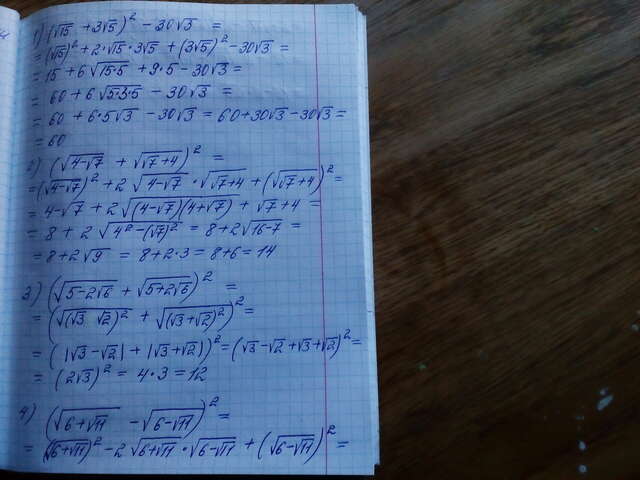 1) (√15 + 3√5)² − 30√3 =
= (√15)² + 2·√15·3√5 + (3√5)² − 30√3 =
= 15 + 6√15·5 + 9·5 − 30√3 =
= 60 + 6√5·3·5 − 30√3 =
= 60 + 6·5√3 − 30√3 = 60 + 30√3 − 30√3 =
= 60
2) (√(4−√7) + √(√7+4))² =
= (√(4−√7))² + 2√(4−√7) · √(√7+4) + (√(√7+4))² =
= 4−√7 + 2√((4−√7)(4+√7)) + √7+4 =
= 8 + 2√(4²−(√7)²) = 8 + 2√(16−7) =
= 8+2√9 = 8+2·3 = 8+6 = 14
3) (√(5−2√6) + √(5+2√6))² =
= (√((√3 √2)²) + √((√3+√2)²))² =
= (|√3−√2| + |√3+√2|)² = (√3−√2+√3+√2)² =
= (2√3)² = 4·3 = 12
4) (√(6+√11) − √(6−√11))² =
= (√(6+√11))² − 2√(6+√11) · √(6−√11) + (√(6−√11))² =